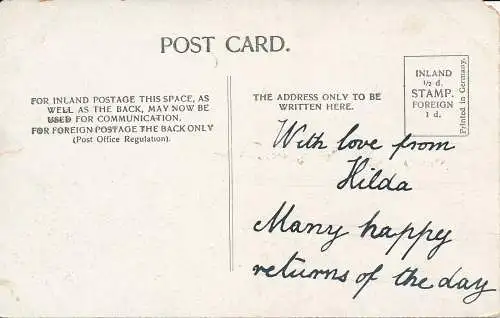 POST CARD.
FOR INLAND POSTAGE THIS SPACE, AS
WELL AS THE BACK, MAY NOW BE
USED FOR COMMUNICATION.
FOR FOREIGN POSTAGE THE BACK ONLY
(Post Office Regulation).
THE ADDRESS ONLY TO BE
WRITTEN HERE.
INLAND
½ d.
STAMP.
FOREIGN
1 d.
Printed in Germany.
With love from
Hilda
Many happy
returns of the day